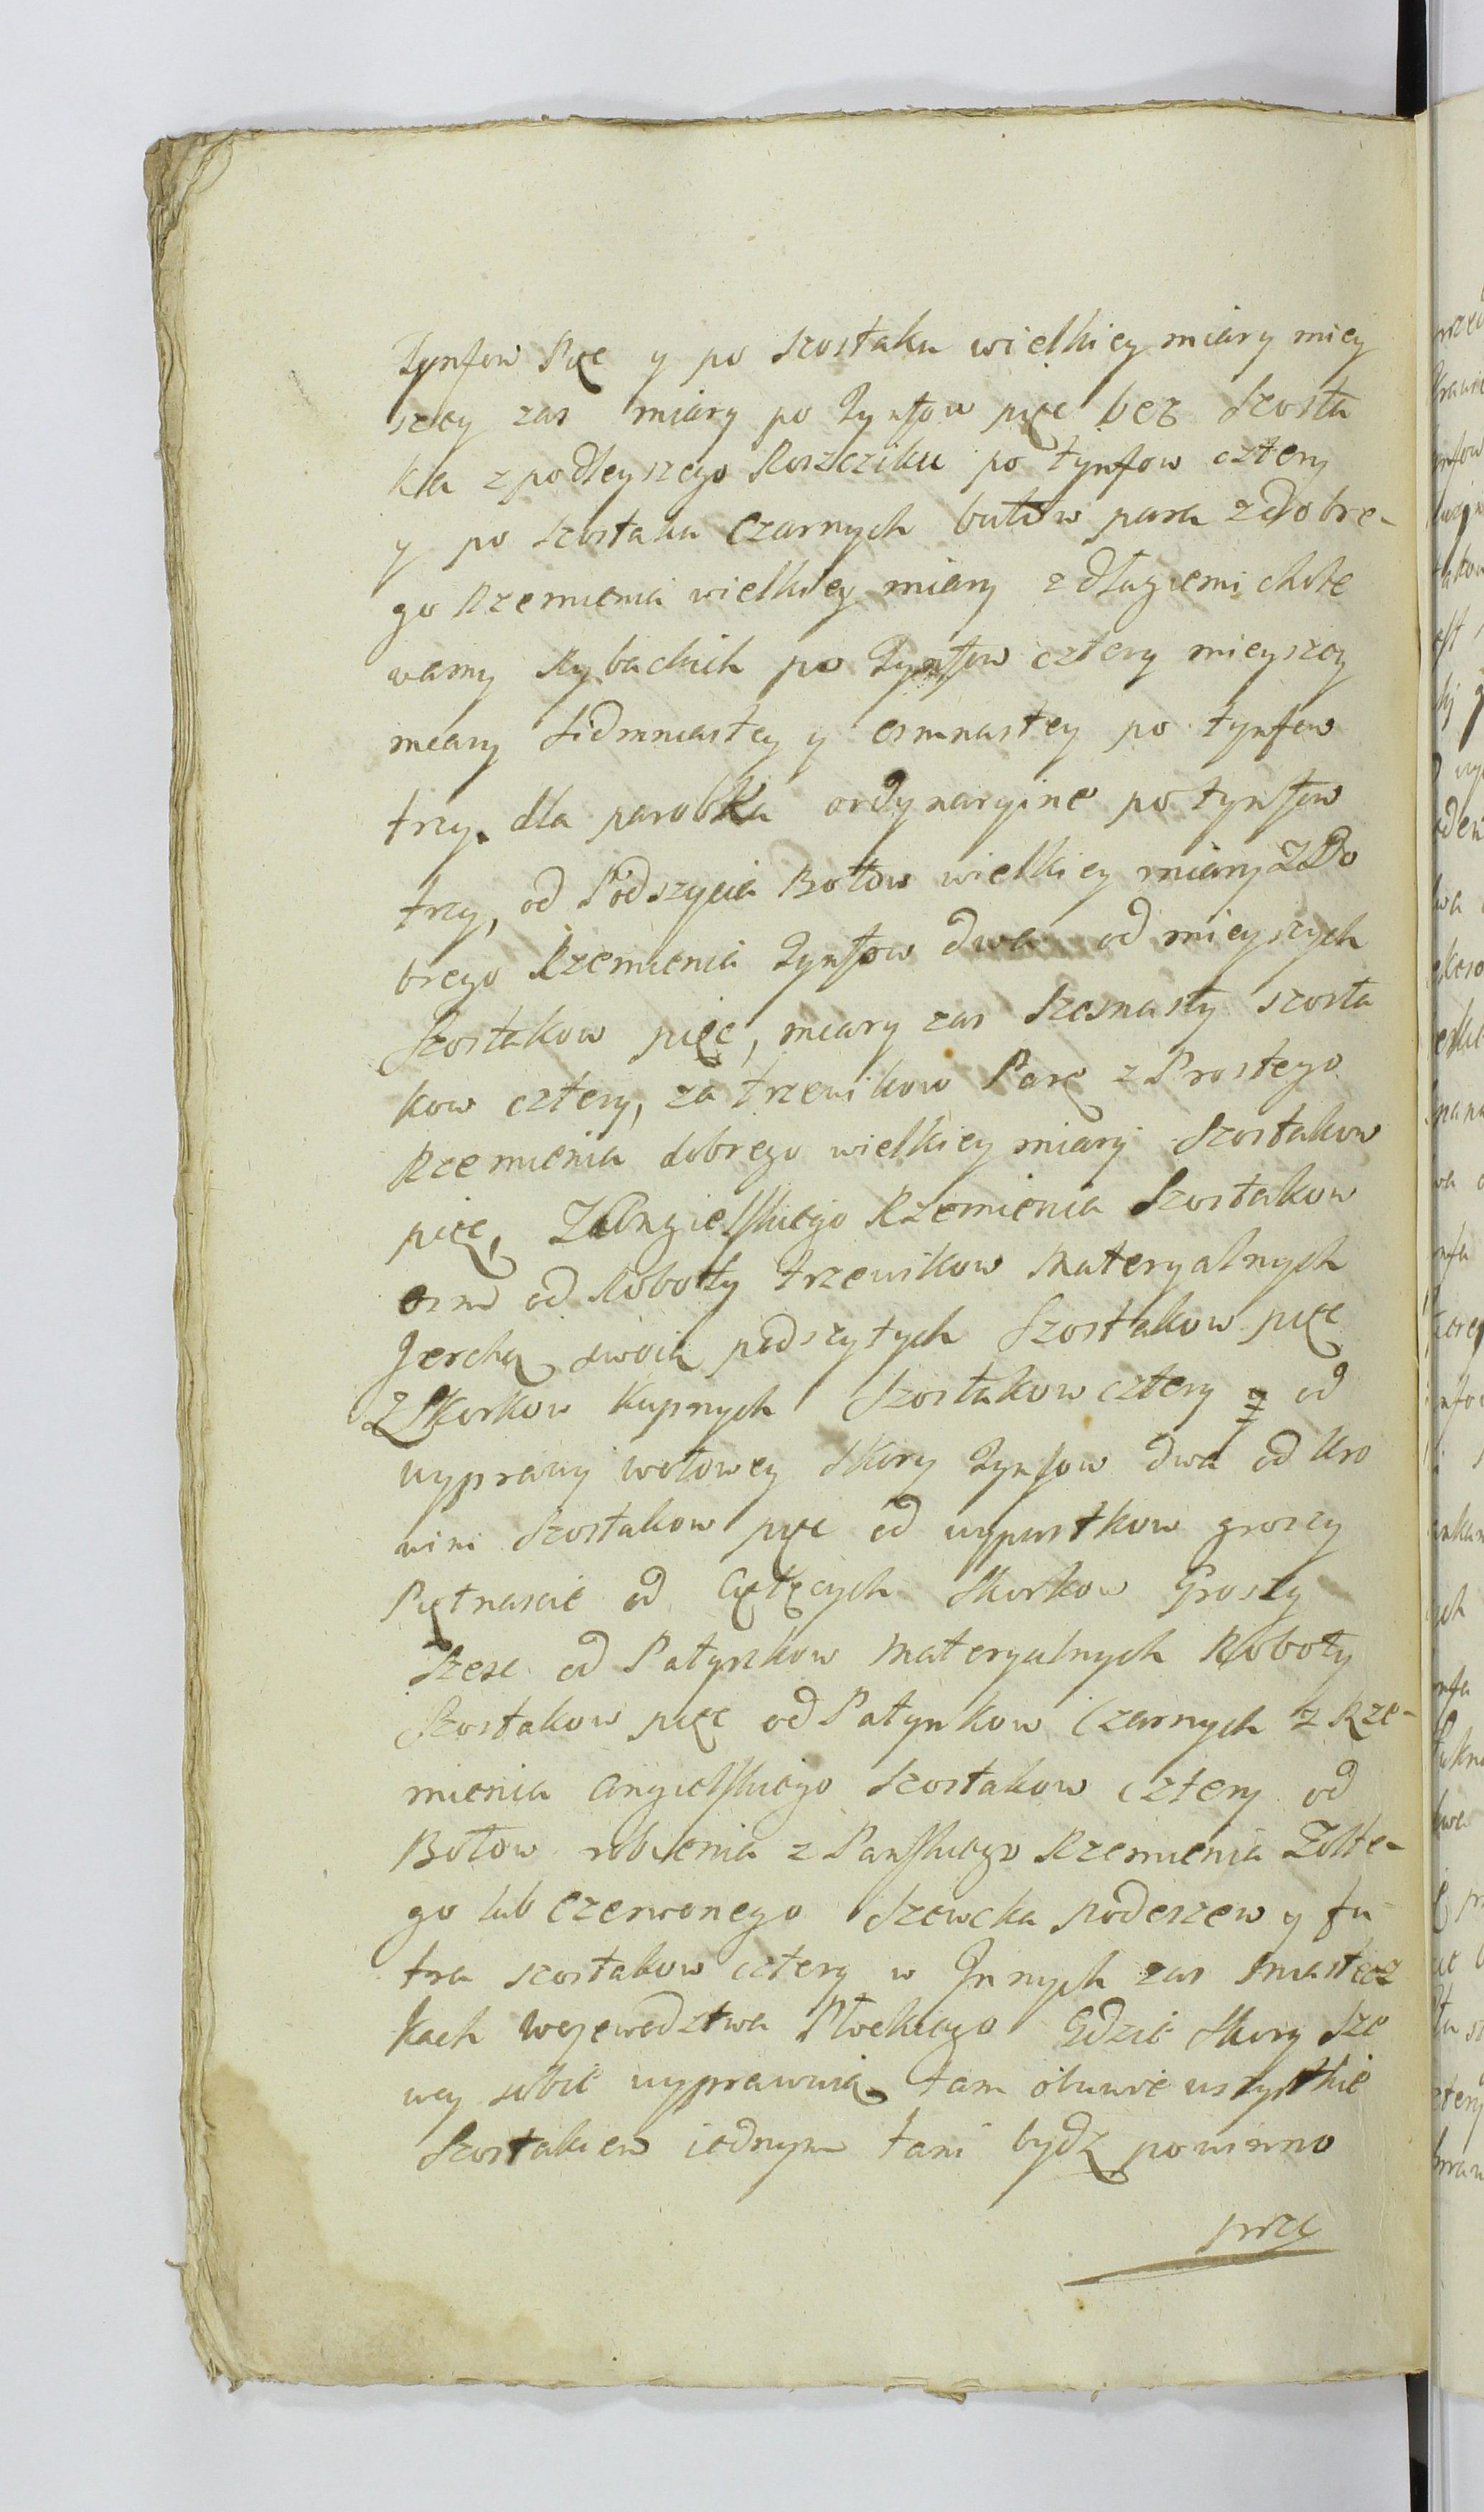 Tynfow Pięc y po Szostaku wielkiey miary miey
szey zas miary po Tynfow pięc bez Szosta
ka z podleyszego Koszcziku po tynfow cztery
y po szostaku Czarnych butow para z dobre-
go Rzemienia wielkiey miary z długiemi chole
wamy Rybackich po Tynfow cztery mieyszey
miary Sidmnastey y osmnastey po tynfow
trzy. dla parobka ordynaryine po tynfow
trzy, od Podszycia Botow wielkiey miary Z Do
brego Rzemienia Tynfow dwa od mieyszych
Szostakow pięc, miary zas Szesnasty szosta
kow cztery, za trzewikow Parę z Prostego
Rzemienia dobrego wielkiey miary Szostakow
pięc, Z Angielskiego Rzemienia Szostakow
osm od Roboty trzewikow Materyalnych
Jerchą swoią podszytych Szostakow pięc
Z Skorkow Kupnych Szostakow cztery y od
wyprawy wołowey Skory Tynfow dwa od Kro
wini Szostakow pięc od wypustkow groszy
Piętnascie od Cielęcych Skorkow Groszy
Szesc od Patynkow Materyalnych Roboty
Szostakow pięc od Patynkow Czarnych z Rze-
mienia angielskiego Szostakow cztery od
Botow robienia z Panskiego Rzemienia Zołte-
go lub Czerwonego Szewcka podeszew y fu
tra szostakow cztery w Jnnych zas Miastecz
kach wojewodztwa Płockiego Gdzie Skory Sze
wcy sobie wyprawuią tam obuwie wszystkie
Szostakiem iednym tani bydz powinno
przy